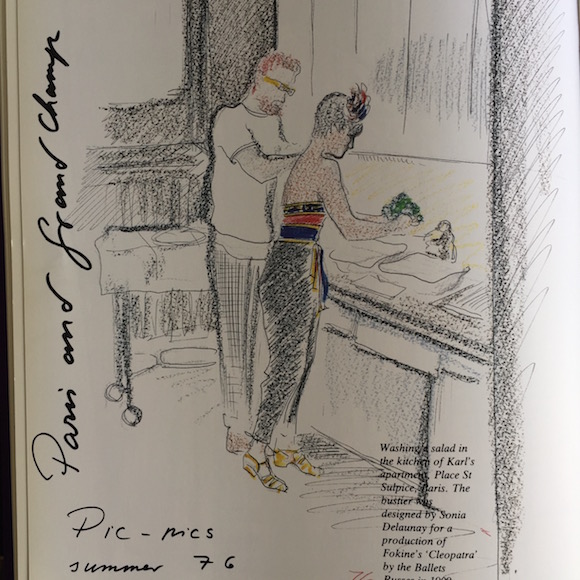 Paris and Grand Champ
Washing a salad in
the kitchen of Karl's
apartment, Place St
Sulpice, Paris. The
bustier was
designed by Sonia
Delaunay for a
production of
Fokine's 'Cleopatra'
by the Ballets
Pic-nics
summer 76